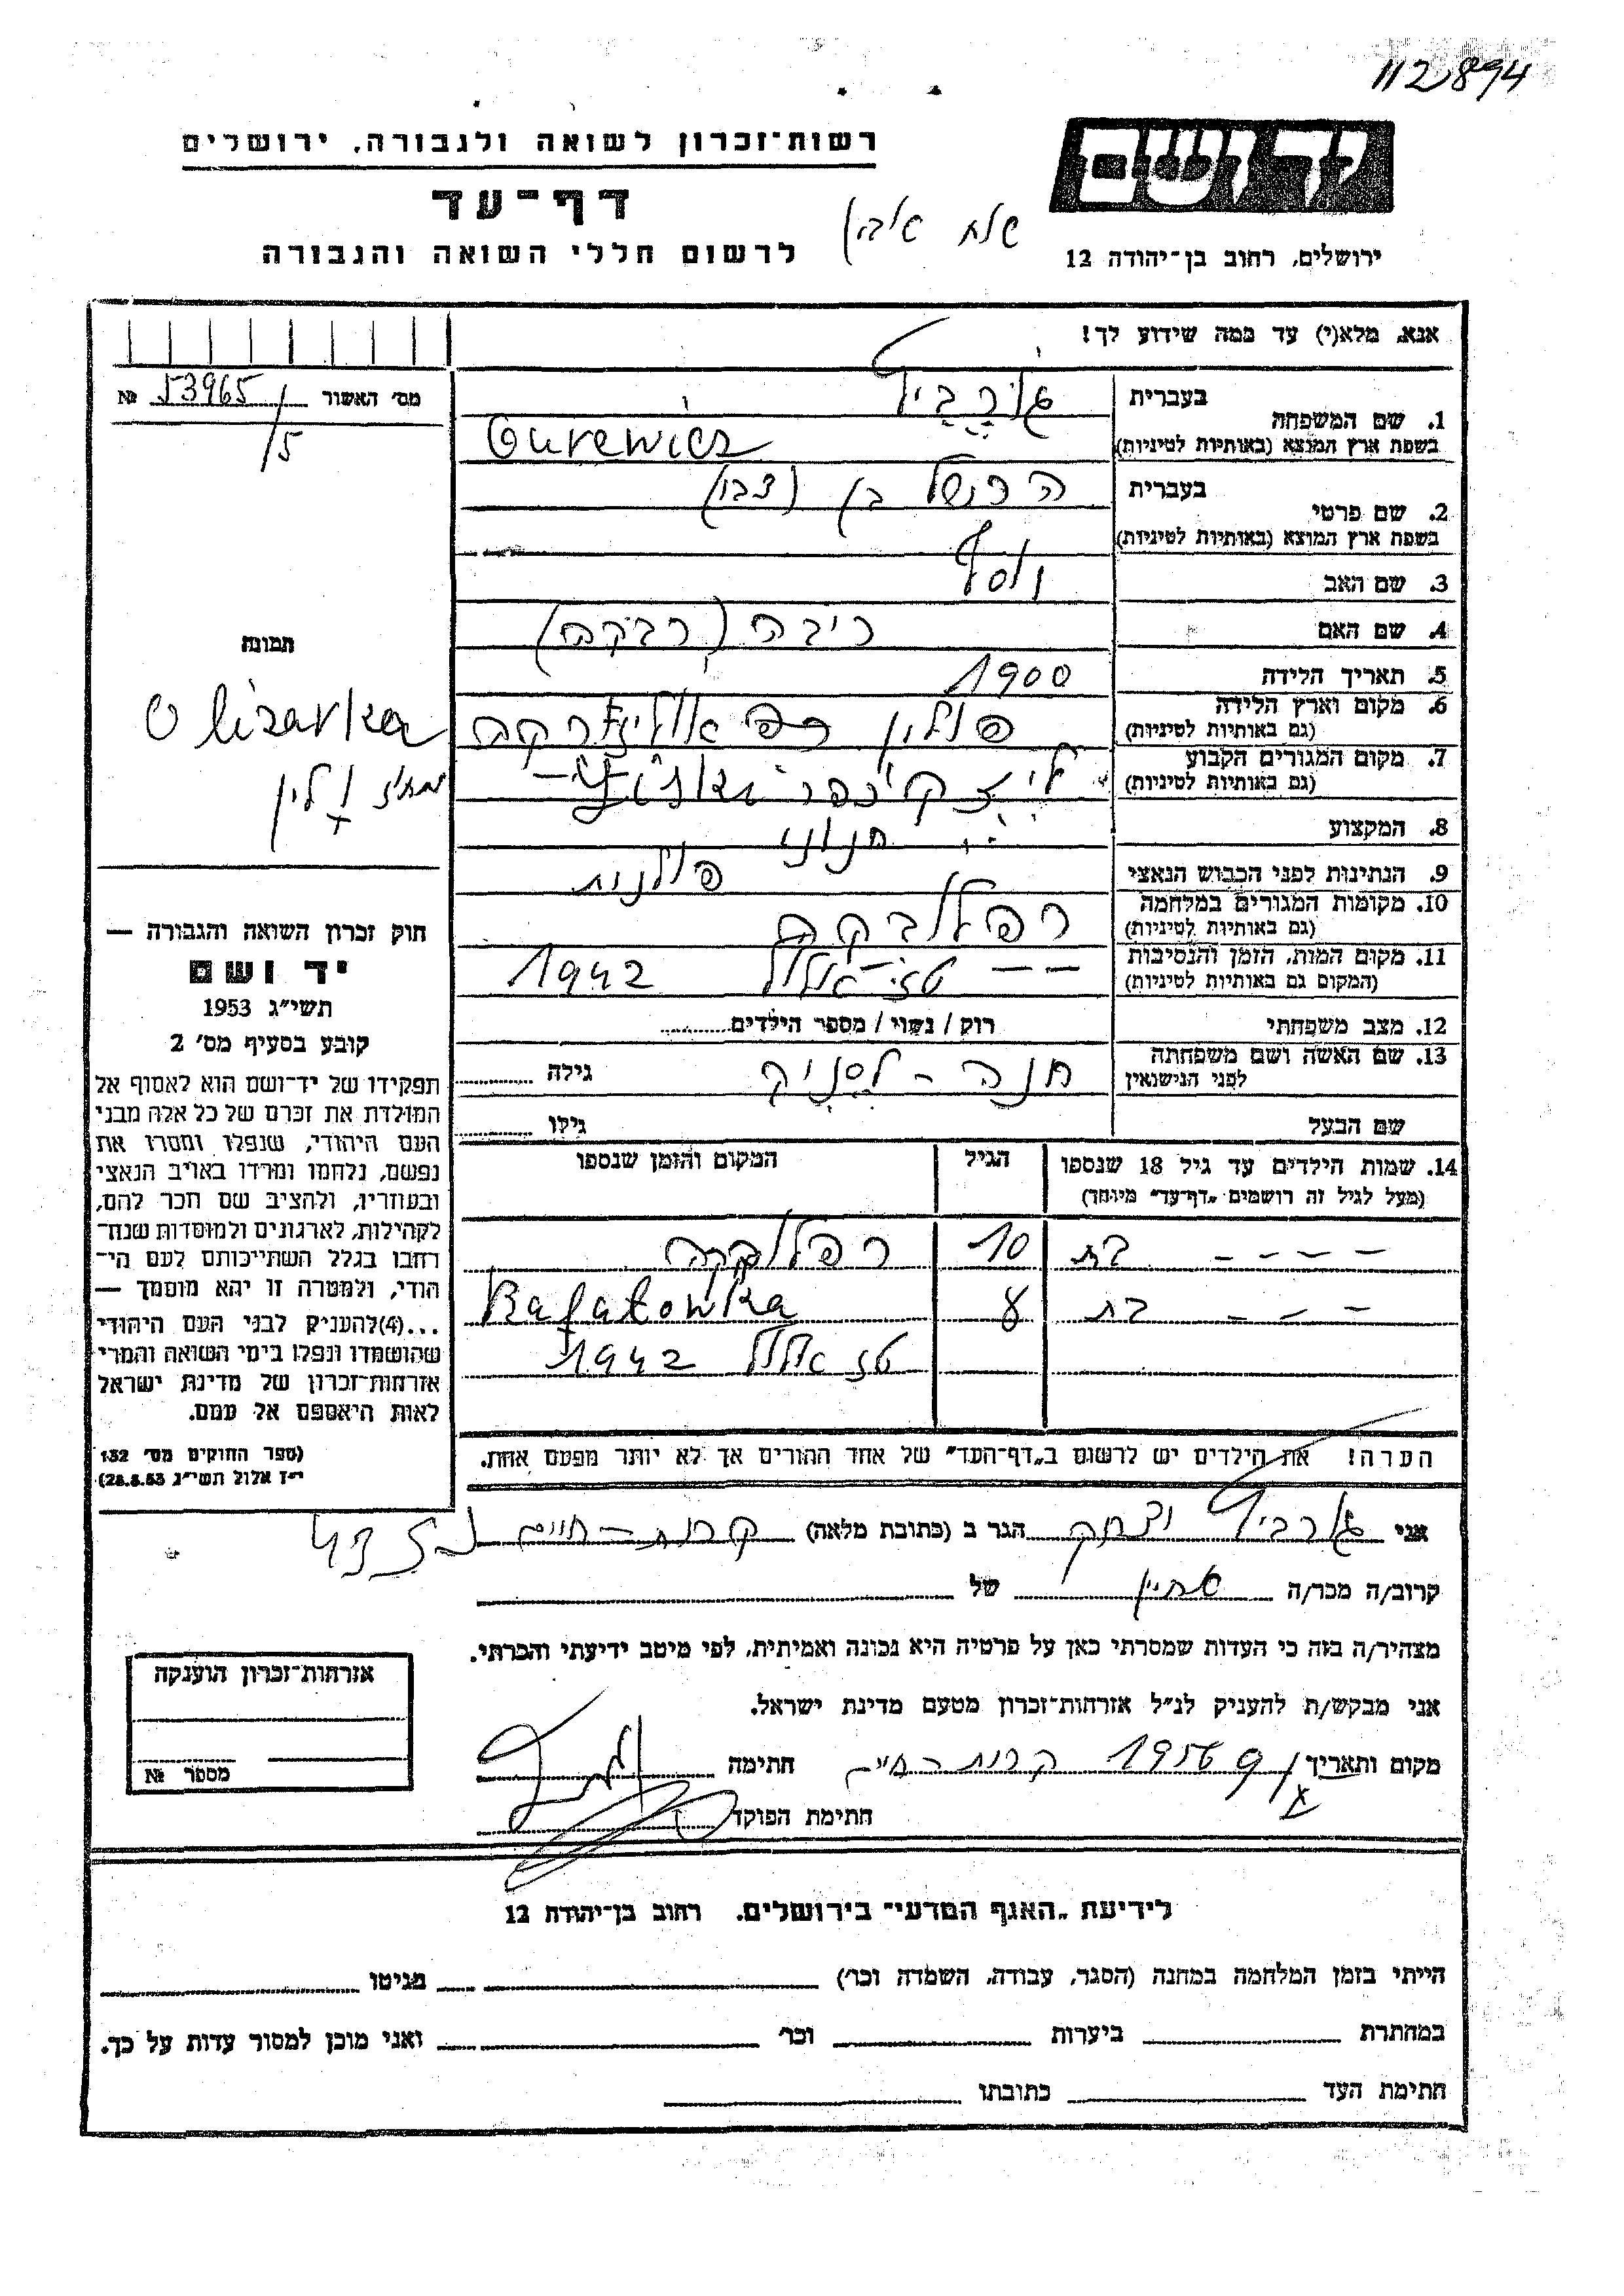 112894
ידושם
רשות־זכרון לשואה ולגבורה, ירושלים
דף־עד
לרשום חללי השואה והגבורה
ירושלים, רחוב בן־יהודה 12
אנא, מלא(י) עד כמה שידוע לך!
מס׳ האשור № 53965/5
1. שם המשפחה
בעברית
בשפת ארץ המוצא (באותיות לטיניות) Gurewicz
2. שם פרטי
בעברית הרשל בן
בשפת ארץ המוצא (באותיות לטיניות)
3. שם האב יוסף
4. שם האם ריבה (רבקה)
5. תאריך הלידה 1900
6. מקום וארץ הלידה פולין
(גם באותיות לטיניות)
7. מקום המגורים הקבוע
(גם באותיות לטיניות)
8. המקצוע חנוני
9. הנתינות לפני הכבוש הנאצי פולנית
10. מקומות המגורים במלחמה רפלובקה
(גם באותיות לטיניות)
11. מקום המות, הזמן והנסיבות -- טז-אלול 1942
(המקום גם באותיות לטיניות)
12. מצב משפחתי רוק / נשוי / מספר הילדים
13. שם האשה ושם משפחתה חנה - לסניק גילה
לפני הנישואין
שם הבעל גילו
תמונה
Olizarka
חוק זכרון השואה והגבורה —
יד ושם
תשי״ג 1953
קובע בסעיף מס׳ 2
תפקידו של יד־ושם הוא לאסוף אל
המולדת את זכרם של כל אלה מבני
העם היהודי, שנפלו ומסרו את
נפשם, נלחמו ומרדו באויב הנאצי
ובעוזריו, ולהציב שם וזכר להם,
לקהילות, לארגונים ולמוסדות שנח־
רחבו בגלל השתייכותם לעם הי־
הודי, ולמטרה זו יהא מוסמך —
...(4)להעניק לבני העם היהודי
שהושמדו ונפלו בימי השואה והמרי
אזרחות־זכרון של מדינת ישראל
לאות היאספם אל עמם.
(ספר החוקים מס׳ 132
י״ז אלול תשי״ג 28.8.53)
14. שמות הילדים עד גיל 18 שנספו הגיל המקום והזמן שנספו
(מעל לגיל זה רושמים „דף־עד״ מיוחד)
---- בת 10 רפלובקה
--- בת 8 Rafalowka
טז אלול 1942
הערה! את הילדים יש לרשום ב„דף־העד״ של אחד ההורים אך לא יותר מפעם אחת.
אני יצחק הגר ב (כתובת מלאה) קרית-חיים
קרוב/ה מכר/ה של
מצהיר/ה בזה כי העדות שמסרתי כאן על פרטיה היא נכונה ואמיתית, לפי מיטב ידיעתי והכרתי.
אני מבקש/ת להעניק לנ״ל אזרחות־זכרון מטעם מדינת ישראל.
מקום ותאריך 1956 קרית-חיים חתימה
חתימת הפוקד
אזרחות־זכרון הוענקה
מספר №
לידיעת „האגף המדעי״ בירושלים, רחוב בן־יהודה 12
הייתי בזמן המלחמה במחנה (הסגר, עבודה, השמדה וכר׳) בגיטו
במחתרת ביערות וכר׳ ואני מוכן למסור עדות על כך.
חתימת העד כתובתו